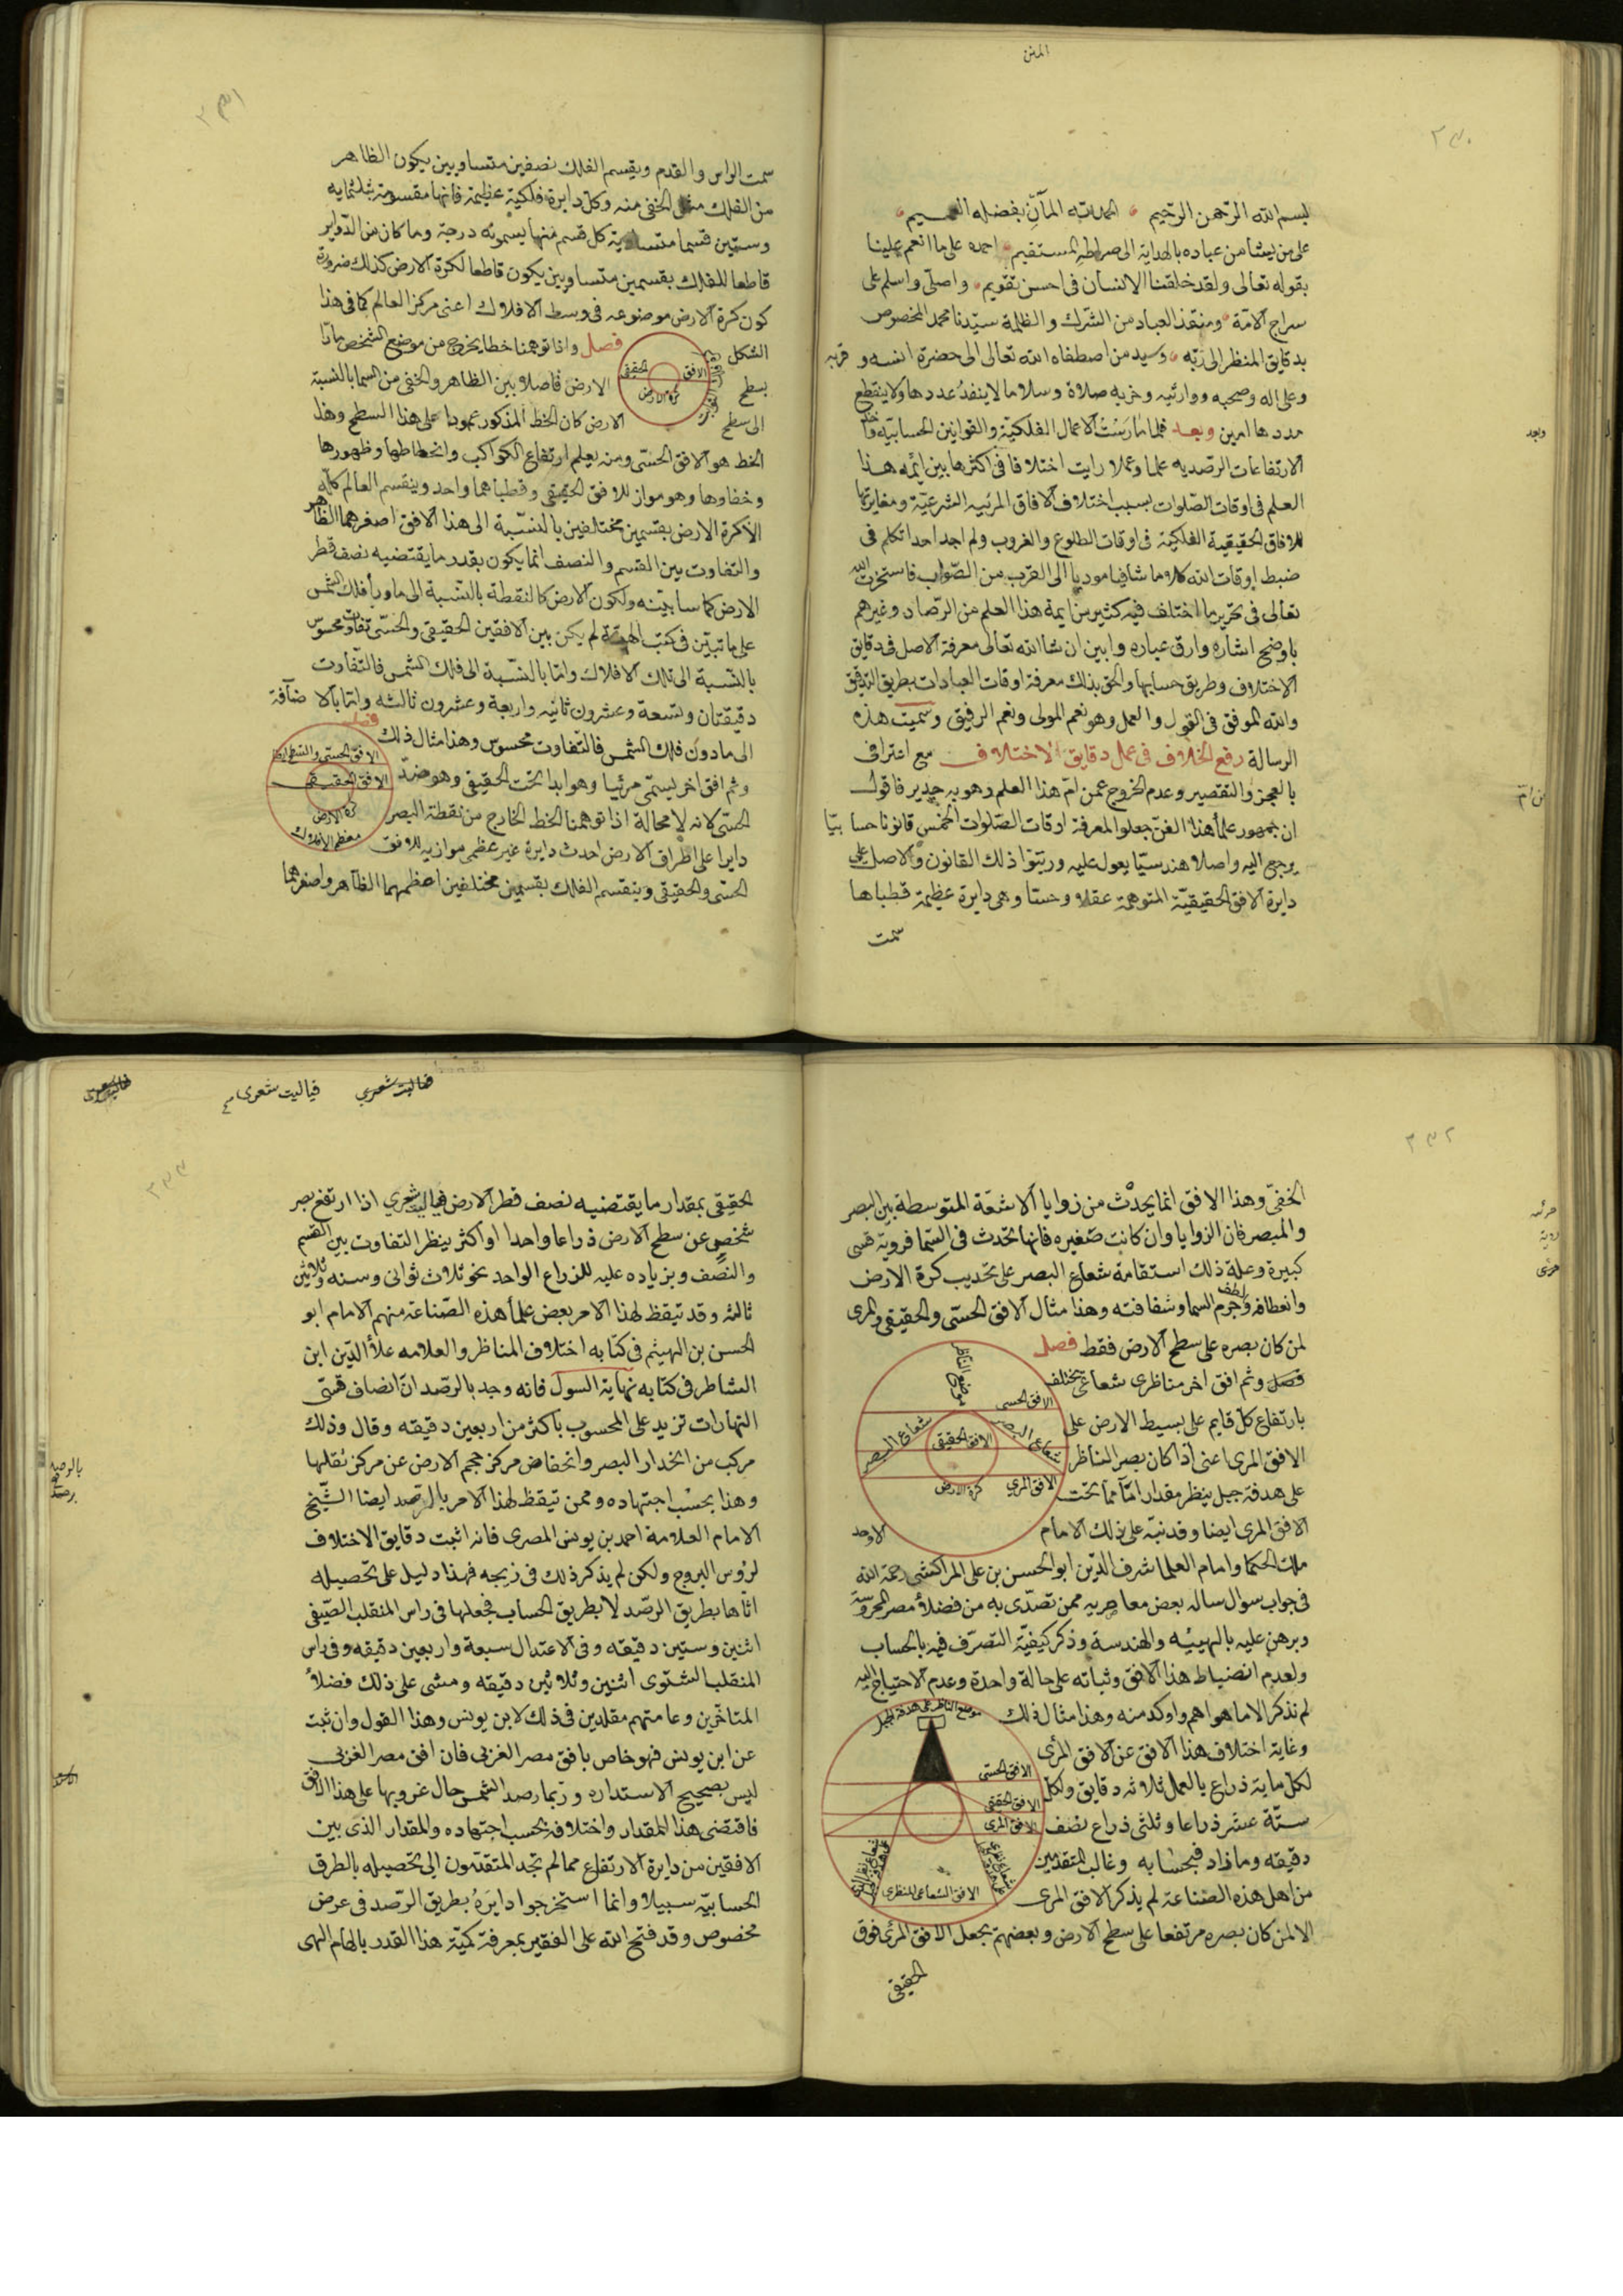 المتن
٢٣٠
بسم الله الرحمن الرحيم الحمد لله المآن بفضله
على من يشا من عباده بالهداية الى صراطه المستقيم احمده على ما انعم علينا
بقوله تعالى ولقد خلقنا الانسان فى احسن تقويم واصلى واسلم على
سراج الامة ومنقذ العباد من الشرك والظلمة سيدنا محمد المخصوص
بدقايق المنظر الى ربه وسيد من اصطفاه الله تعالى الى حضرة انسه و قربه
وعلى اله وصحبه ووارثيه وحزبه صلاة وسلاما لا ينفد عددها ولا ينقطع
مددها امين وبعد فلما مارست الاعمال الفلكية والقوانين الحسابيه
وبعد
الارتفاعات الرصديه علما وعملا رايت اختلافا فى اكثرها بين ايمه هذا
العلم فى اوقات الصلوات بسبب اختلاف الافاق المرئيه الشرعية ومغايرتها
للافاق الحقيقية الفلكية فى اوقات الطلوع والغروب ولم اجد احدا تكلم فى
ضبط اوقات الله كلاما شافيا موديا الى القرب من الصواب فاستخرت الله
تعالى فى تحرير ما اختلف فيه كثير من ايمة هذا العلم من الرصاد وغيرهم
باوضح اشاره وارق عباره وابين ان شا الله تعالى معرفة الاصل فى دقايق
الاختلاف وطريق حسابها والحق بذلك معرفة اوقات العبادات بطريق التدقيق
والله الموفق فى القول والعمل وهو نعم المولى ونعم الرفيق وسميت هذه
الرسالة رفع الخلاف فى عمل دقايق الاختلاف مع اعترافى
بالعجز والتقصير وعدم الخروج عمن ام هذا العلم وهو به جدير فاقول
ان جمهور علما هذا الفن جعلوا لمعرفة اوقات الصلوات الخمس قانونا حسابيا
يرجع اليه واصلا هندسيا يعول عليه ورتبوا ذلك القانون والاصل على
دايرة الافق الحقيقية المتوهمة عقلا وحسا وهى دايرة عظيمة قطباها
سمت
٢٣١
سمت الراس والقدم ويقسم الفلك نصفين متساويين يكون الظاهر
من الفلك مثل الخفى منه وكل دايرة فلكية عظيمة فانها مقسومة بثلثمايه
وستين قسما متساوية كل قسم منها يسمونه درجة وما كان من الدواير
قاطعا للفلك بقسمين متساويين يكون قاطعا لكرة الارض كذلك ضرورة
كون كرة الارض موضوعه فى وسط الافلاك اعنى مركز العالم كما فى هذا
الشكل فصل واذا توهمنا خطا يخرج من موضع الشخص مارا
بسطح الارض فاصلا بين الظاهر والخفى من السما بالنسبة
الى سطح الارض كان الخط المذكور عمودا على هذا السطح وهذا
الافق الحقيقى
كرة الارض
الخط هو الافق الحسى ومنه يعلم ارتفاع الكواكب وانحطاطها وظهورها
وخفاوها وهو مواز للافق الحقيقى وقطباهما واحد وينقسم العالم كله
الا كرة الارض بقسمين مختلفين بالنسبة الى هذا الافق اصغرهما الظاهر
والتفاوت بين القسم والنصف انما يكون بقدر ما يقتضيه نصف قطر
الارض كما سابينه ولكون الارض كالنقطة بالنسبة الى ماورأ فلك الشمس
على ما تبين فى كتب الهيئة لم يكن بين الافقين الحقيقى والحسى تفاوت محسوس
بالنسبة الى تلك الافلاك واما بالنسبة الى فلك الشمس فالتفاوت
دقيقتان وتسعة وعشرون ثانيه واربعة وعشرون ثالثه واما بالاضافة
الى ما دون فلك الشمس فالتفاوت محسوس وهذا مثال ذلك فصل
وثم افق اخر يسمى مرئيا وهو ابدا تحت الحقيقى وهو ضد
الحسى لانه لا محالة اذا توهمنا الخط الخارج من نقطة البصر
دايرا على اطراف الارض احدث دايرة غير عظمى موازيه للافق
الافق الحقيقى
كرة الارض
معظم الافلاك
الحسى والحقيقى وينقسم الفلك بقسمين مختلفين اعظمهما الظاهر واصغرهما
٢٣٢
الخفى وهذا الافق انما يحدث من زوايا الاشعة المتوسطة بين البصر
والمبصر فان الزوايا وان كانت صغيره فانها تحدث فى السما فروية قسى
كبيرة وعلة ذلك استقامة شعاع البصر على تحديب كرة الارض
وانعطافه ولطف جرم السما وشفافته وهذا مثال الافق الحسى والحقيقى والمرى
لمن كان بصره على سطح الارض فقط فصل
فصل وثم افق اخر مناظرى شعاعى يختلف
بارتفاع كل قايم على بسيط الارض على
الافق المرى اعنى اذا كان بصر الناظر
على هدفة جبل ينظر مقدارا ما مما تحت
الافق المرى ايضا وقد نبه على ذلك الامام الاوحد
موضع الناظر
الافق الحسى
شعاع البصر
شعاع البصر
الافق الحقيقى
الافق المرى
كرة الارض
ملك الحكما وامام العلما شرف الدين ابو الحسن بن على المراكشى رحمة الله
فى جواب سوال ساله بعض معاصريه ممن تصدى به من فضلاء مصر المحروسة
وبرهن عليه بالهييه والهندسة وذكر كيفية التصرف فيه بالحساب
ولعدم انضباط هذا الافق وثباته على حالة واحدة وعدم الاحتياج اليه
لم نذكر الا ما هو اهم واوكد منه وهذا مثال ذلك
وغاية اختلاف هذا الافق عن الافق المرأى
لكل ماية ذراع بالعمل ثلاثه دقايق ولكل
ستة عشر ذراعا وثلثى ذراع نصف
دقيقه وما زاد فبحسابه وغالب المتقدمين
من اهل هذه الصناعة لم يذكر الافق المرى
موضع الناظر على هدفة الجبل
الافق الحسى
الافق الحقيقى
الافق المرى
الافق الشعاعى المنظرى
الا لمن كان بصره مرتفعا على سطح الارض وبعضهم يجعل الافق المرئى فوق
الحقيقى
فياليت شعرى
فياليت شعرى
٢٣٣
الحقيقى بمقدار ما يقتضيه نصف قطر الارض فياليت شعري اذا ارتفع بصر
شخص عن سطح الارض ذراعا واحدا او اكثر ينظر التفاوت بين القسم
والنصف ويزياده عليه للزراع الواحد نحو ثلاث ثوانى وسته وثلاثين
ثالثه وقد تيقظ لهذا الامر بعض علمأ هذه الصناعة منهم الامام ابو
الحسن بن الهيثم فى كتابه اختلاف المناظر والعلامه علأ الدين ابن
الشاطر فى كتابه نهاية السول فانه وجد بالرصد ان انصاف قسى
النهارات تزيد على المحسوب باكثر من اربعين دقيقه وقال وذلك
مركب من انحدار البصر وانخفاض مركز حجم الارض عن مركز ثقلها
وهذا بحسب اجتهاده وممن تيقظ لهذا الامر بالرصد ايضا الشيخ
الامام العلامة احمد بن يونس المصرى فانه اثبت دقايق الاختلاف
لرؤس البروج ولكن لم يذكر ذلك فى زيجه فهذا دليل على تحصيله
اياها بطريق الرصد لا بطريق الحساب فجعلها فى راس المنقلب الصيفى
اثنين وستين دقيقه وفى الاعتدال سبعة واربعين دقيقه وفى راس
المنقلب الشتوى اثنين وثلاثين دقيقه ومشى على ذلك فضلاء
المتاخرين وعامتهم مقلدين فى ذلك لابن يونس وهذا القول وان ثبت
عن ابن يونس فهو خاص بافق مصر الغربى فان افق مصر الغربى
ليس بصحيح الاستداره وربما رصد الشمس حال غروبها على هذا الافق
فاقتضى هذا المقدار واختلافه بحسب اجتهاده والمقدار الذى بين
الافقين من دايرة الارتفاع مما لم تجد المتقدمون الى تحصيله بالطرق
الحسابيه سبيلا وانما استخرجوا دايره بطريق الرصد فى عرض
مخصوص وقد فتح الله على الفقير بمعرفة كمية هذا القدر بالهام الهى